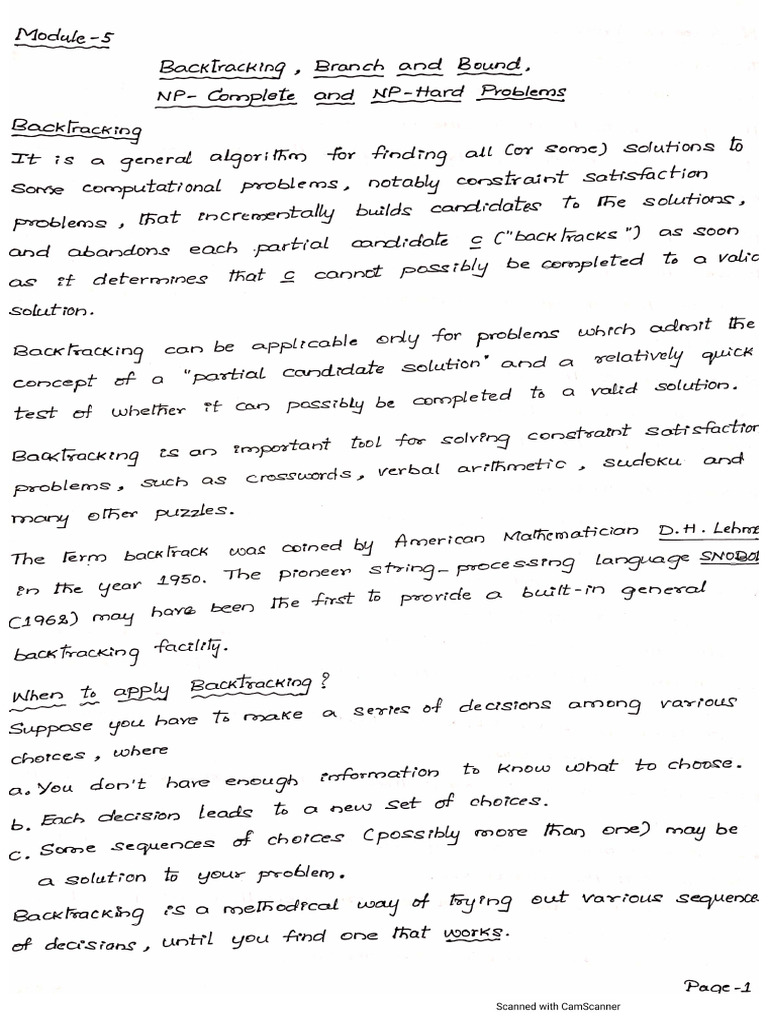 Module-5
Backtracking, Branch and Bound,
NP-Complete and NP-Hard Problems
Backtracking
It is a general algorithm for finding all (or some) solutions to
some computational problems, notably constraint satisfaction
problems, that incrementally builds candidates to the solutions,
and abandons each partial candidate c ("backtracks") as soon
as it determines that c cannot possibly be completed to a valid
solution.
Backtracking can be applicable only for problems which admit the
concept of a "partial candidate solution" and a relatively quick
test of whether it can possibly be completed to a valid solution.
Backtracking is an important tool for solving constraint satisfaction
problems, such as crosswords, verbal arithmetic, sudoku and
many other puzzles.
The term backtrack was coined by American Mathematician D.H. Lehme
in the year 1950. The pioneer string-processing language SNOBOL
(1962) may have been the first to provide a built-in general
backtracking facility.
When to apply Backtracking?
Suppose you have to make a series of decisions among various
choices, where
a. You don't have enough information to know what to choose.
b. Each decision leads to a new set of choices.
c. Some sequences of choices (possibly more than one) may be
a solution to your problem.
Backtracking is a methodical way of trying out various sequence
of decisions, until you find one that works.
Page-1
Scanned with CamScanner